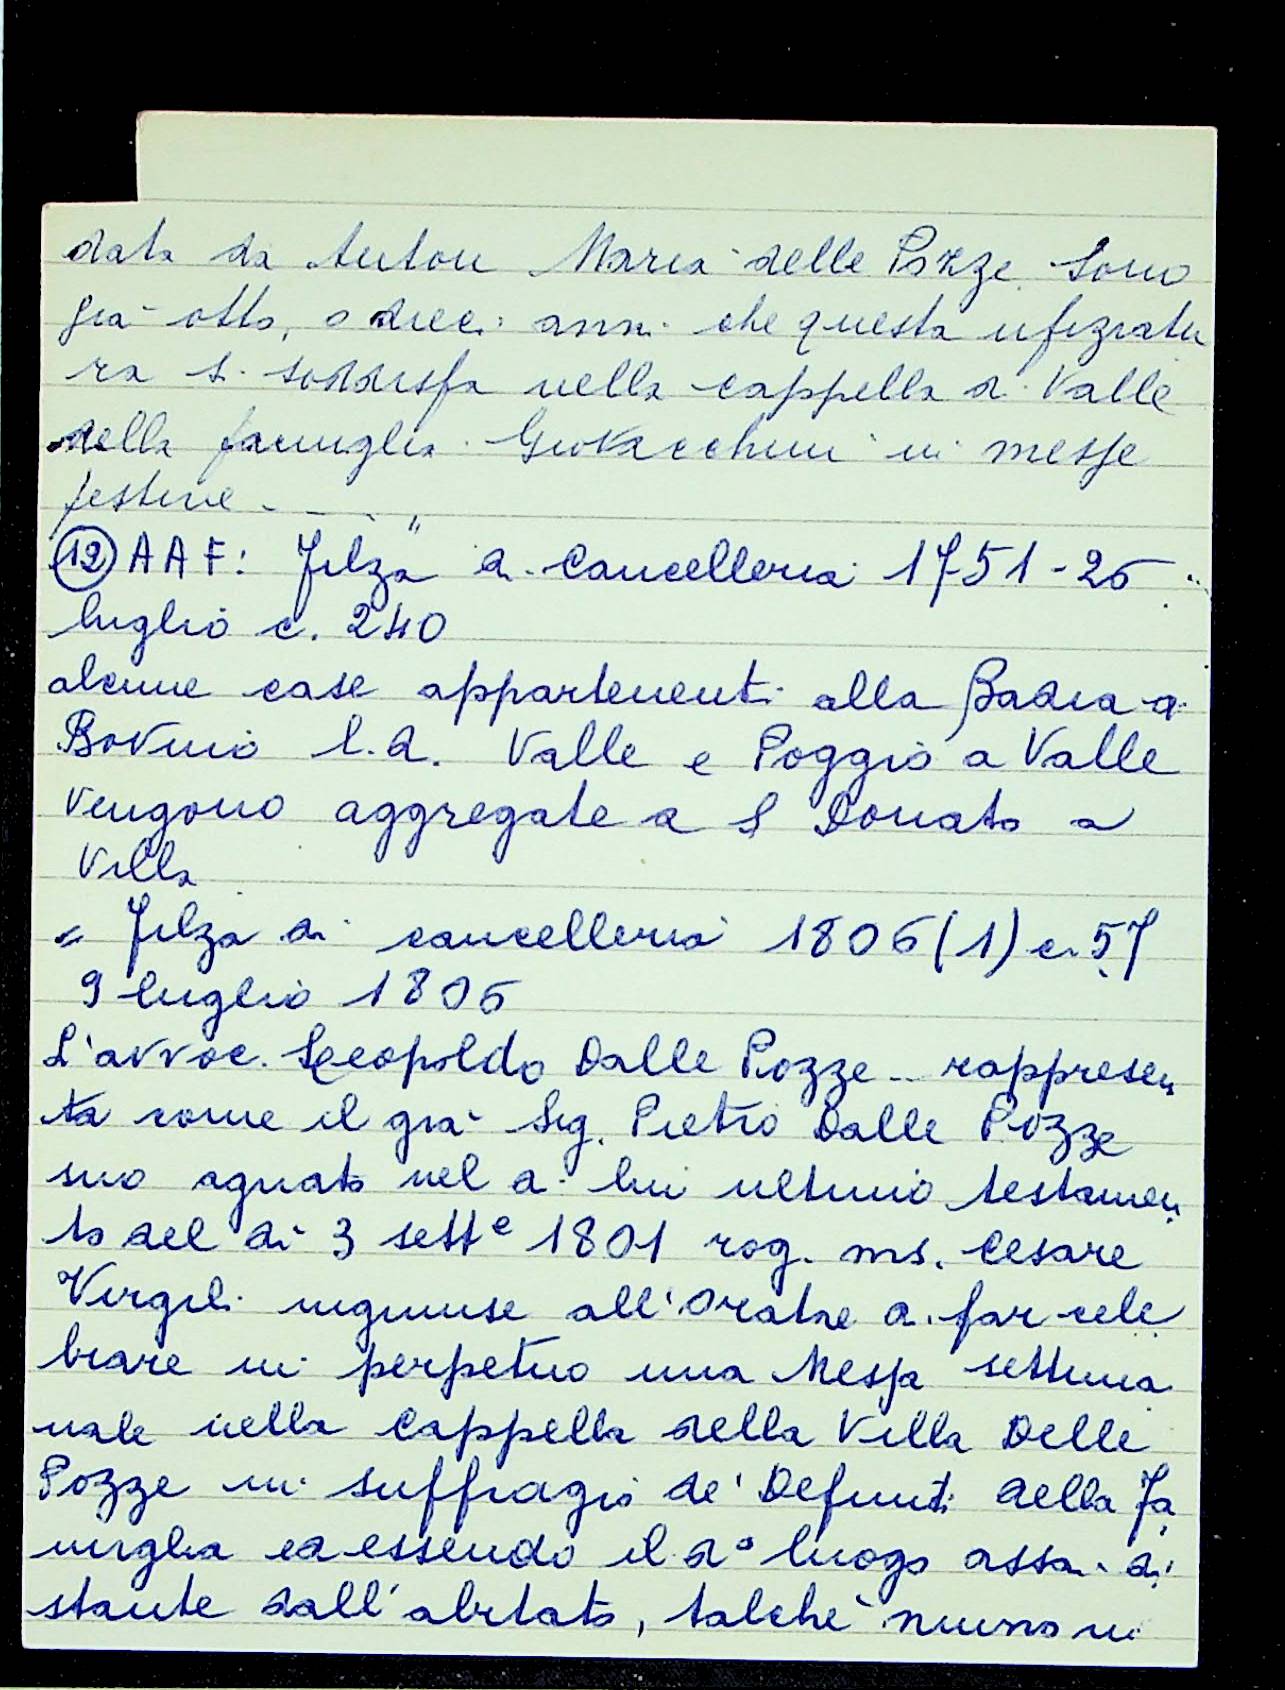 data da Anton Maria delle Pozze. Sono
già otto, o dieci anni che questa ufiziatu
ra si soddisfa nella cappella di Valle
della famiglia Giovacchini in messe
festive - - - . "
(12) AAF: Filza di Cancelleria 1751 - 26
luglio c. 240
alcune case appartenenti alla Badia a
Bovino l.d. Valle e Poggio a Valle
vengono aggregate a S Donato a
Villa
= Filza di cancelleria 1806 (1) c. 57
9 luglio 1806
L'avvoc. Leopoldo Dalle Pozze - rappresen
ta come il già Sig. Pietro Dalle Pozze
suo agnato nel di lui ultimo testamen
to del dì 3 sett.e 1801 rog. ms. Cesare
Virgili ingiunse all'Oratre di far cele
brare in perpetuo una Messa settima
nale nella Cappella della Villa Delle
Pozze in suffragio de' Defunti della Fa
miglia ed essendo il do luogo assai di
stante dall'abitato, talchè niuno vi